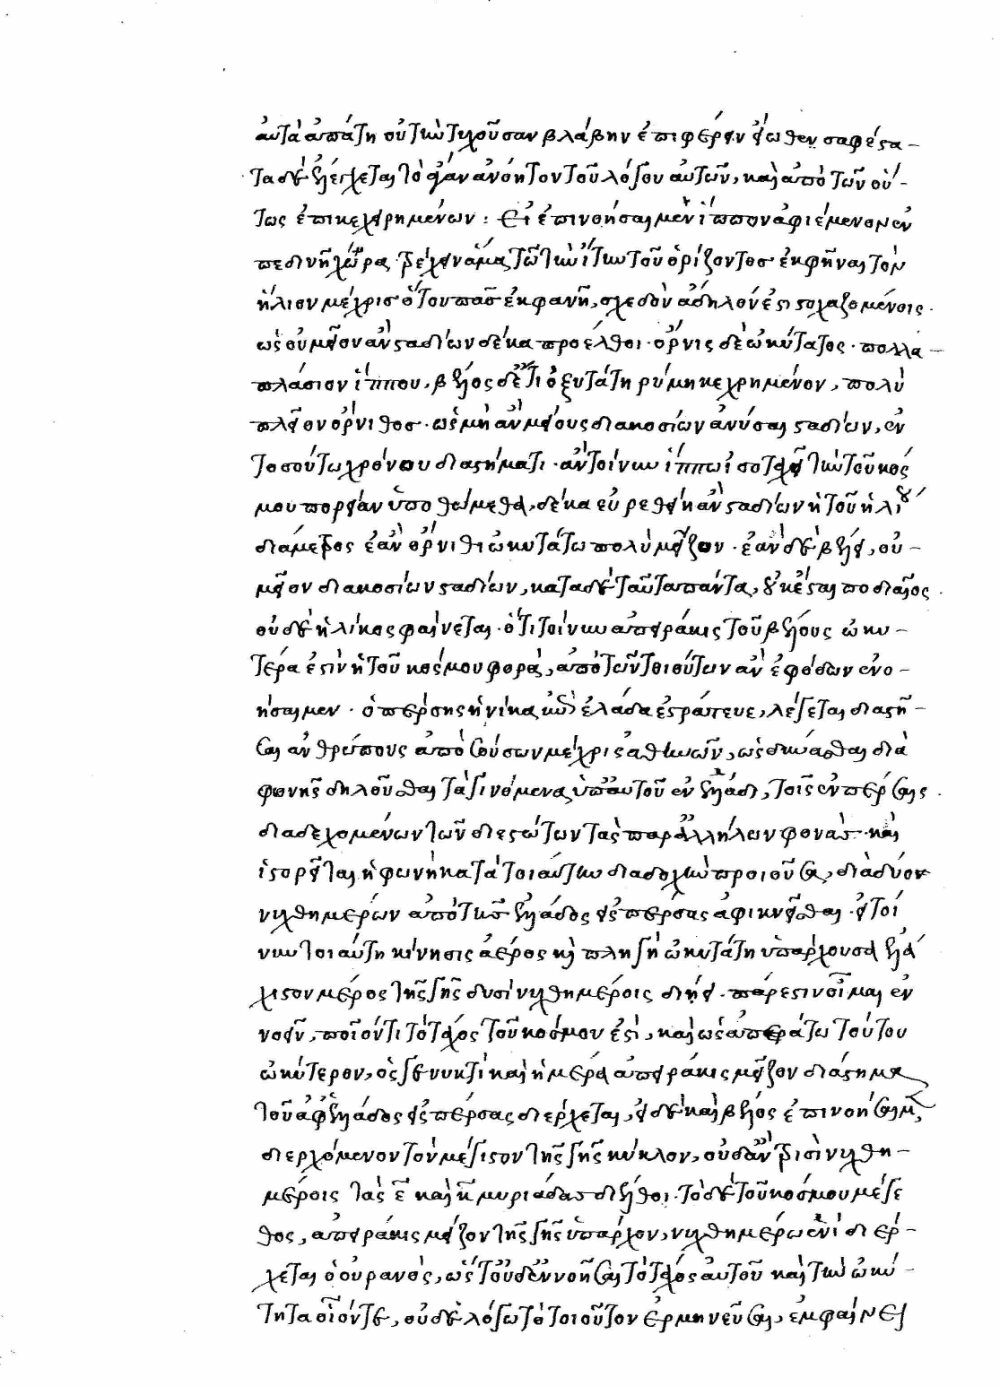 αὐτὰ ἀπάτη οὐ τὴν τυχοῦσαν βλάβην ἐπιφέρειν εἴωθεν σαφέστα-
τα δὲ ἐλέγχεται τὸ ἄγαν ἀνόητον τοῦ λόγου αὐτῶν, καὶ ἀπὸ τῶν οὕ-
τως ἐπικεχειρημένων : Εἰ ἐπινοήσαιμεν ἵππον ἀφιέμενον ἐν
πεδινῇ χώρᾳ τρέχειν ἅμα τῷ τὴν ἴτυν τοῦ ὁρίζοντος ἐκφῆναι τὸν
ἥλιον μέχρις ὅτου πᾶς ἐκφανῇ, σχεδὸν ἄδηλόν ἐστι στοχαζομένοις.
ὡς οὐ μεῖον ἂν σταδίων δέκα προέλθοι. ὄρνις δὲ ὠκύτατος. πολλα-
πλάσιον ἵππου, βέλος δέ τι ὀξυτάτῃ ῥύμῃ κεχρημένον, πολὺ
πλεῖον ὄρνιθος. ὡς μὴ ἂν μείους διακοσίων ἀνύσαι σταδίων, ἐν
τοσούτῳ χρόνου διαστήματι. ἂν τοίνυν ἵππῳ ἰσοταχεῖ τὴν τοῦ κόσ
μου πορείαν ὑποθώμεθα, δέκα εὑρεθείη ἂν σταδίων ἡ τοῦ ἡλίου
διάμετρος ἐὰν ὄρνιθι ὠκυτάτῳ πολὺ μεῖζον. ἐὰν δὲ βέλει, οὐ-
μεῖον διακοσίων σταδίων, κατὰ δὲ ταῦτα πάντα, οὐκ ἔσται ποδιαῖος.
οὐδὲ ἡλίκος φαίνεται. ὅτι τοίνυν ἀπειράκις τοῦ βέλους ὠκυ-
τέρα ἐστὶν ἡ τοῦ κόσμου φορὰ, ἀπὸ τῶν τοιούτων ἂν ἐφόδων ἐνο-
ήσαιμεν. ὁ πέρσης ἡνίκα τὴν ἑλάδα ἐστράτευε, λέγεται διαστῆ-
σαι ἀνθρώπους ἀπὸ σούσων μέχρις ἀθηνῶν, ὡς δύνασθαι διὰ
φωνῆς δηλοῦσθαι τὰ γινόμενα ὑπ' αὐτοῦ ἐν ἑλλάδι, τοῖς ἐν πέρσαις.
διαδεχομένων τῶν διεστώτων τὰς παρ' ἀλλήλων φονάς. καὶ
ἱστορεῖται ἡ φωνὴ κατὰ τοιαύτην διαδοχὴν προιοῦσα, διὰ δύον
νυχθημέρων ἀπὸ τῆς ἑλλάδος εἰς πέρσας ἀφικνεῖσθαι. εἰ τοί
νυν τοιαύτη κίνησις ἀέρος καὶ πληγὴ ὠκυτάτη ὑπάρχουσα ἐλά
χιστον μέρος τῆς γῆς δυσὶ νυχθημέροις διήει. πάρεστιν οἶμαι ἐν
νοεῖν, ποῖον τί τὸ τάχος τοῦ κόσμου ἐστὶ, καὶ ὡς ἀπεράτω τούτου
ὠκύτερον, ὅς γε νυκτὶ καὶ ἡμέρᾳ ἀπειράκις μεῖζον διάστημα
τοῦ ἀφ' ἑλλάδος εἰς πέρσας διέρχεται, εἰ δὲ καὶ βέλος ἐπινοήσαιμεν,
διερχόμενον τὸν μέγιστον τῆς γῆς κύκλον, οὐδ' ἂν τρισὶ νυχθη-
μέροις τὰς ε̄ καὶ κ̄ μυριάδας διέλθοι. τὸ δὲ τοῦ κόσμου μέγε
θος, ἀπειράκις μεῖζον τῆς γῆς ὑπάρχον, νυχθημέρῳ ἑνὶ διέρ-
χεται ὁ οὐρανὸς, ὡς τοῦδε ἐννοῆσαι τὸ τάχος αὐτοῦ καὶ τὴν ὠκύ-
τητα οἷόν τε, οὐδὲ λόγῳ τὸ τοιοῦτον ἑρμηνεῦσαι, ἐμφαίνει